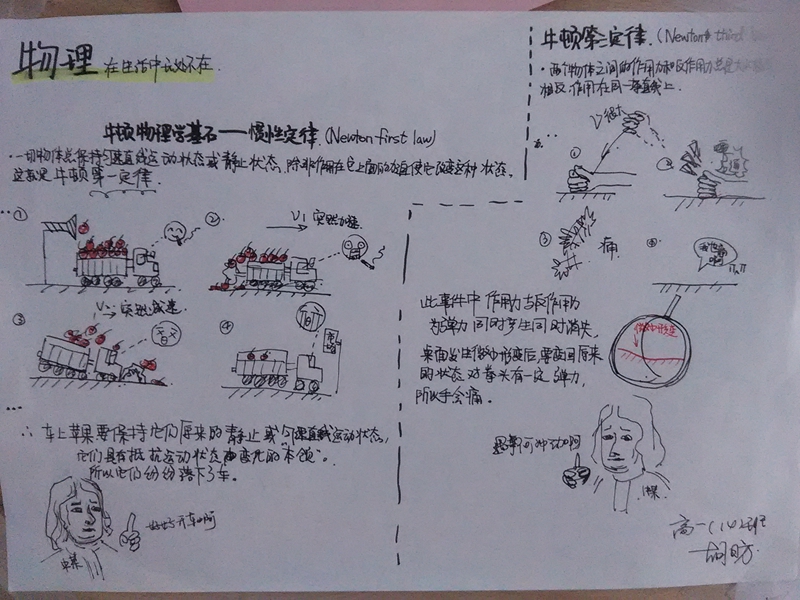 物理 在生活中无处不在.
牛顿物理学基石——惯性定律.(Newton first law)
·一切物体总保持匀速直线运动状态或静止状态,除非作用在它上面的力迫使它改变这种状态.
这就是牛顿第一定律.
①
② V↑ 突然加速
V↓ 突然减速
③
④
∴ 车上苹果要保持它们原来的静止或匀速直线运动状态,
它们具有抵抗运动状态改变的"本领".
所以它们纷纷落下了车.
好好开车啊
牛顿第三定律.(Newton third
·两个物体之间的作用力和反作用力总是大
相反,作用在同一条直线上.
①
②
③ 痛
④
此事件中作用力与反作用力
为弹力同时产生同时消失,
桌面发生微小形变后,要变回原来
的状态,对拳头有一定弹力,
所以手会痛.
微小形变
遇事何冲动啊
高一(14)班